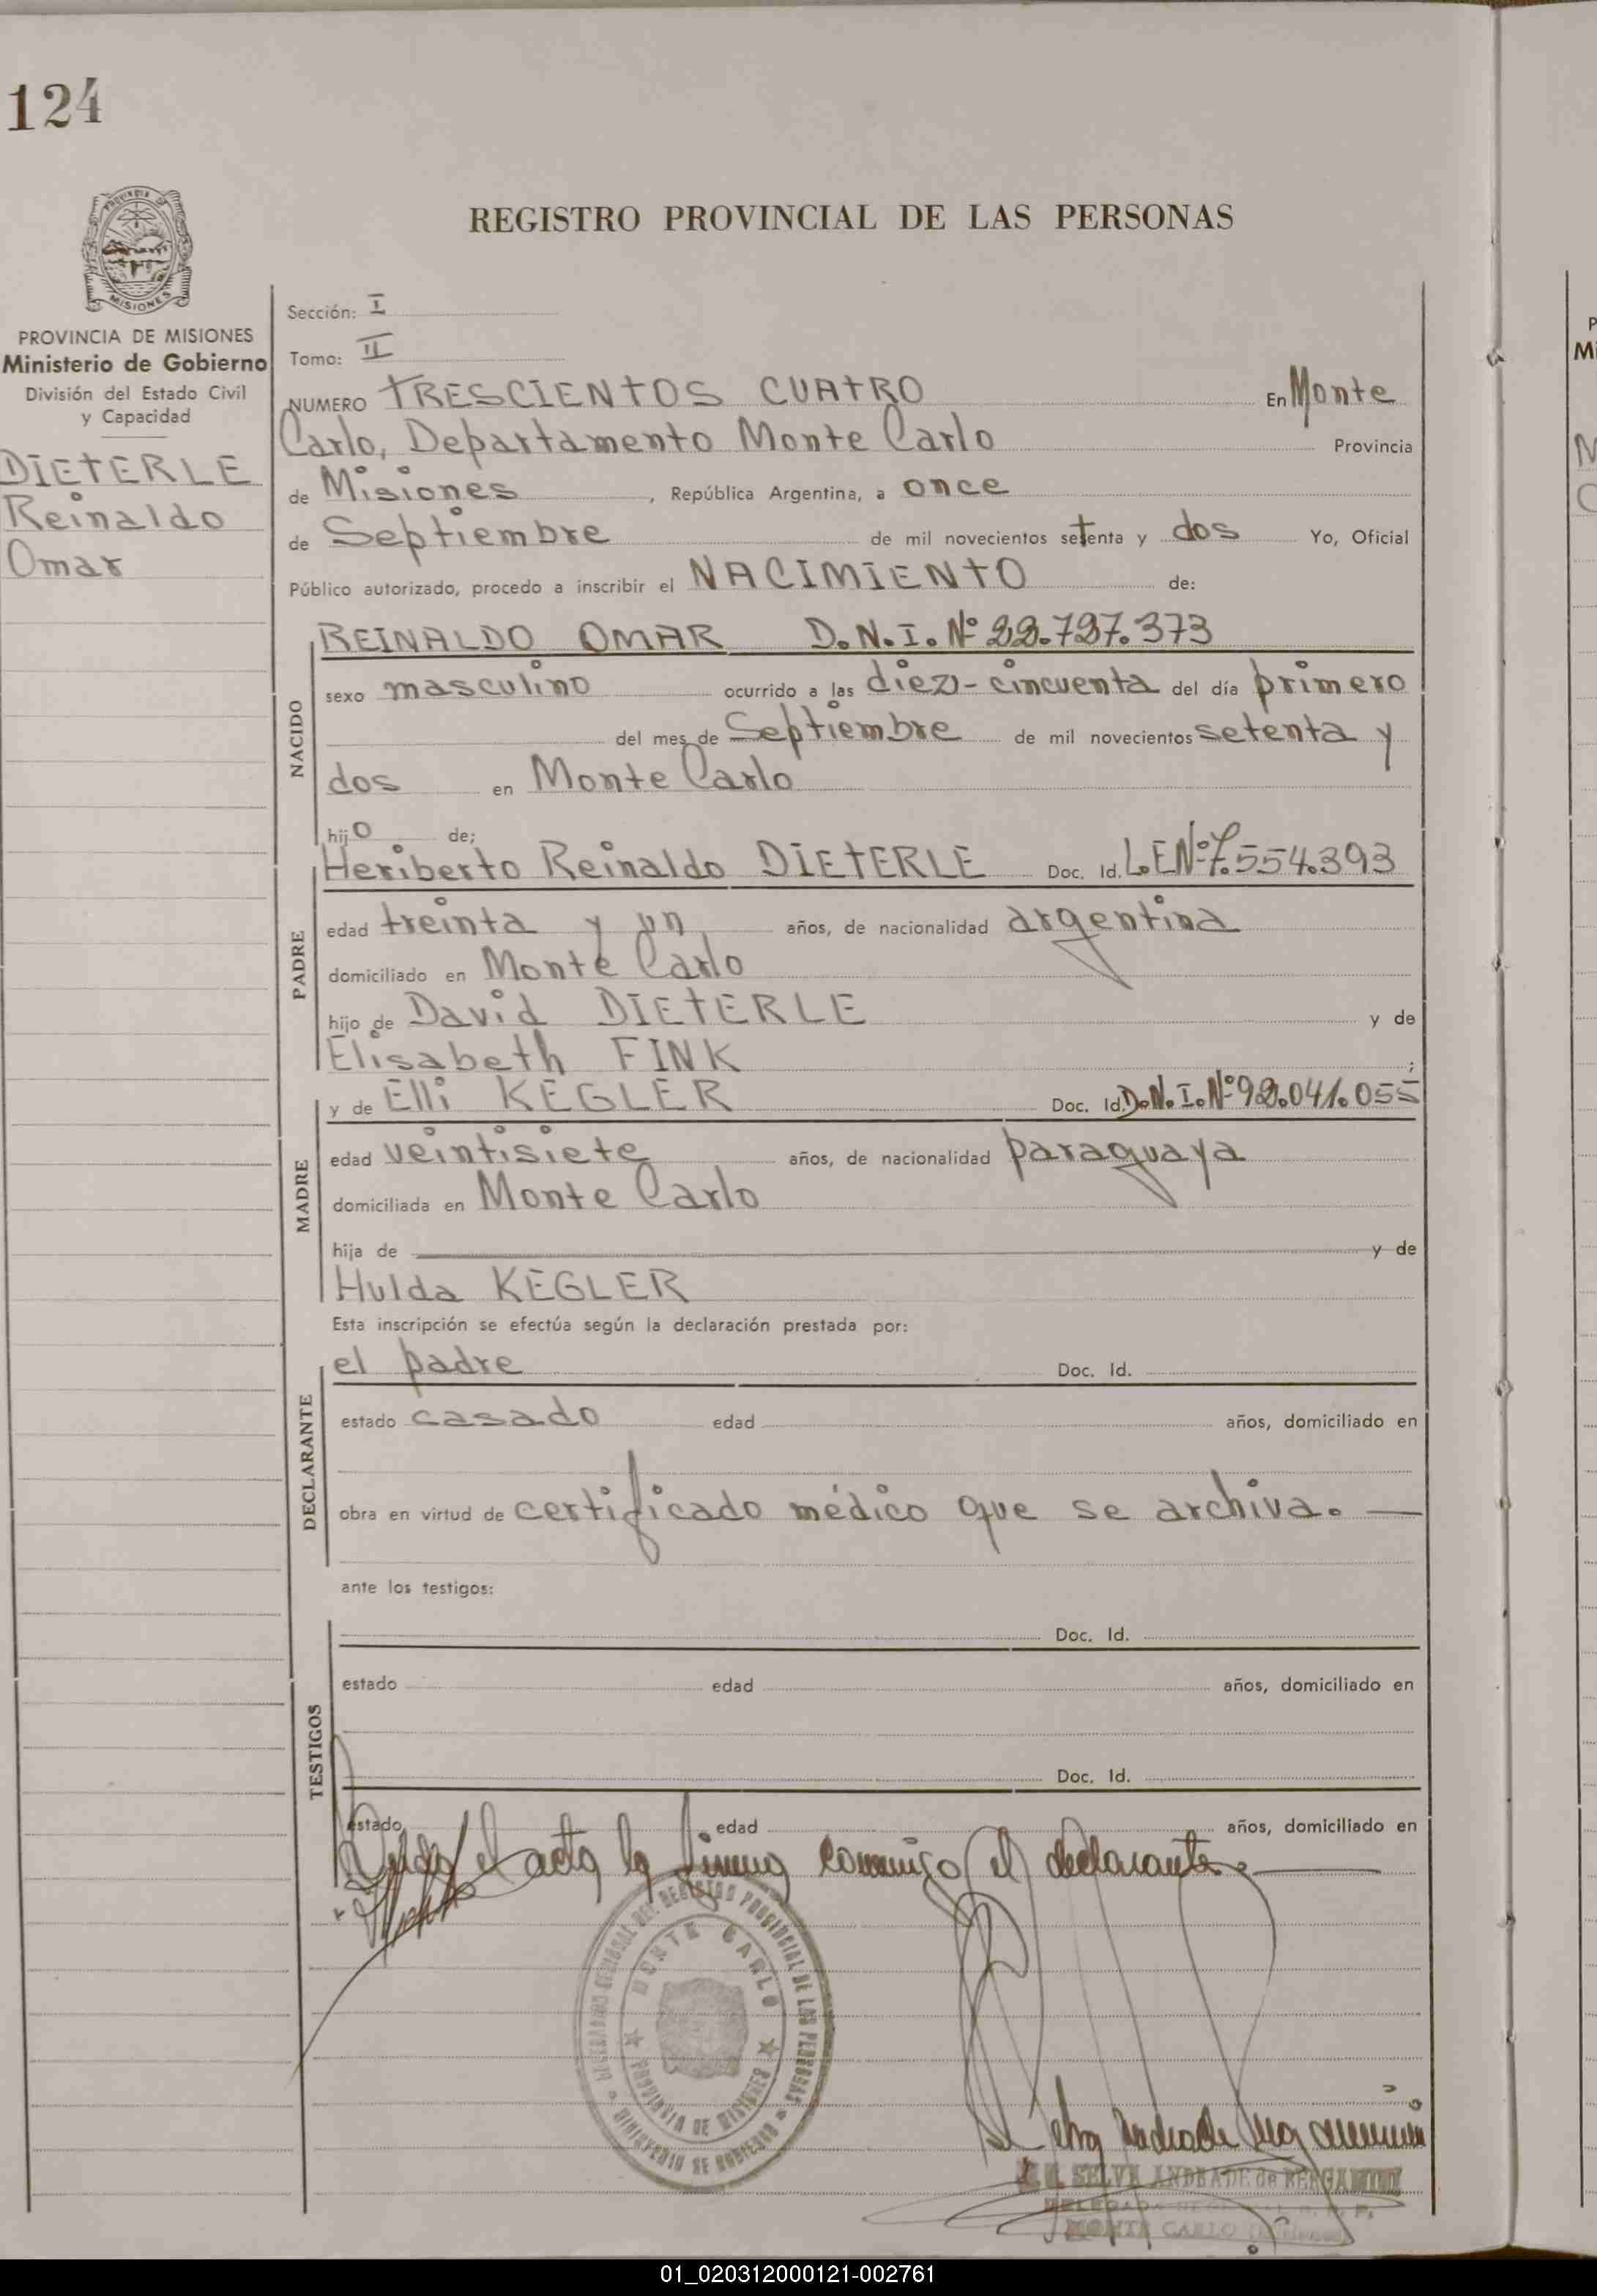 124
REGISTRO PROVINCIAL DE LAS PERSONAS
MISIONES
PROVINCIA DE MISIONES
Ministerio de Gobierno
División del Estado Civil
y Capacidad
DIETERLE
Reinaldo
Omar
Sección: I
Tomo: II
NUMERO TRESCIENTOS CUATRO En Monte
Carlo, Departamento Monte Carlo Provincia
de Misiones, República Argentina, a once
de Septiembre de mil novecientos setenta y dos Yo, Oficial
Público autorizado, procedo a inscribir el NACIMIENTO de:
NACIDO
REINALDO OMAR D.N.I. Nº 22.727.373
sexo masculino ocurrido a las diez-cincuenta del día primero
del mes de Septiembre de mil novecientos setenta y
dos en Monte Carlo
hijo de;
PADRE
Heriberto Reinaldo DIETERLE Doc. Id. L.E.Nº7.554.393
edad treinta y un años, de nacionalidad argentina
domiciliado en Monte Carlo
hijo de David DIETERLE y de
Elisabeth FINK ;
MADRE
y de Elli KEGLER Doc. Id. D.N.I. Nº 92.041.055
edad veintisiete años, de nacionalidad paraguaya
domiciliada en Monte Carlo
hija de y de
Hulda KEGLER
Esta inscripción se efectúa según la declaración prestada por:
DECLARANTE
el padre Doc. Id.
estado casado edad años, domiciliado en
obra en virtud de certificado médico que se archiva.
ante los testigos:
TESTIGOS
Doc. Id.
estado edad años, domiciliado en
Doc. Id.
estado edad años, domiciliado en
Leída el acta la firma conmigo el declarante.
MONTE CARLO
PROVINCIA DE MISIONES
MINISTERIO DE GOBIERNO
DEL REGISTRO PROVINCIAL DE LAS PERSONAS
SELVA ANDRADE de BERGAMINI
MONTE CARLO
01_020312000121-002761